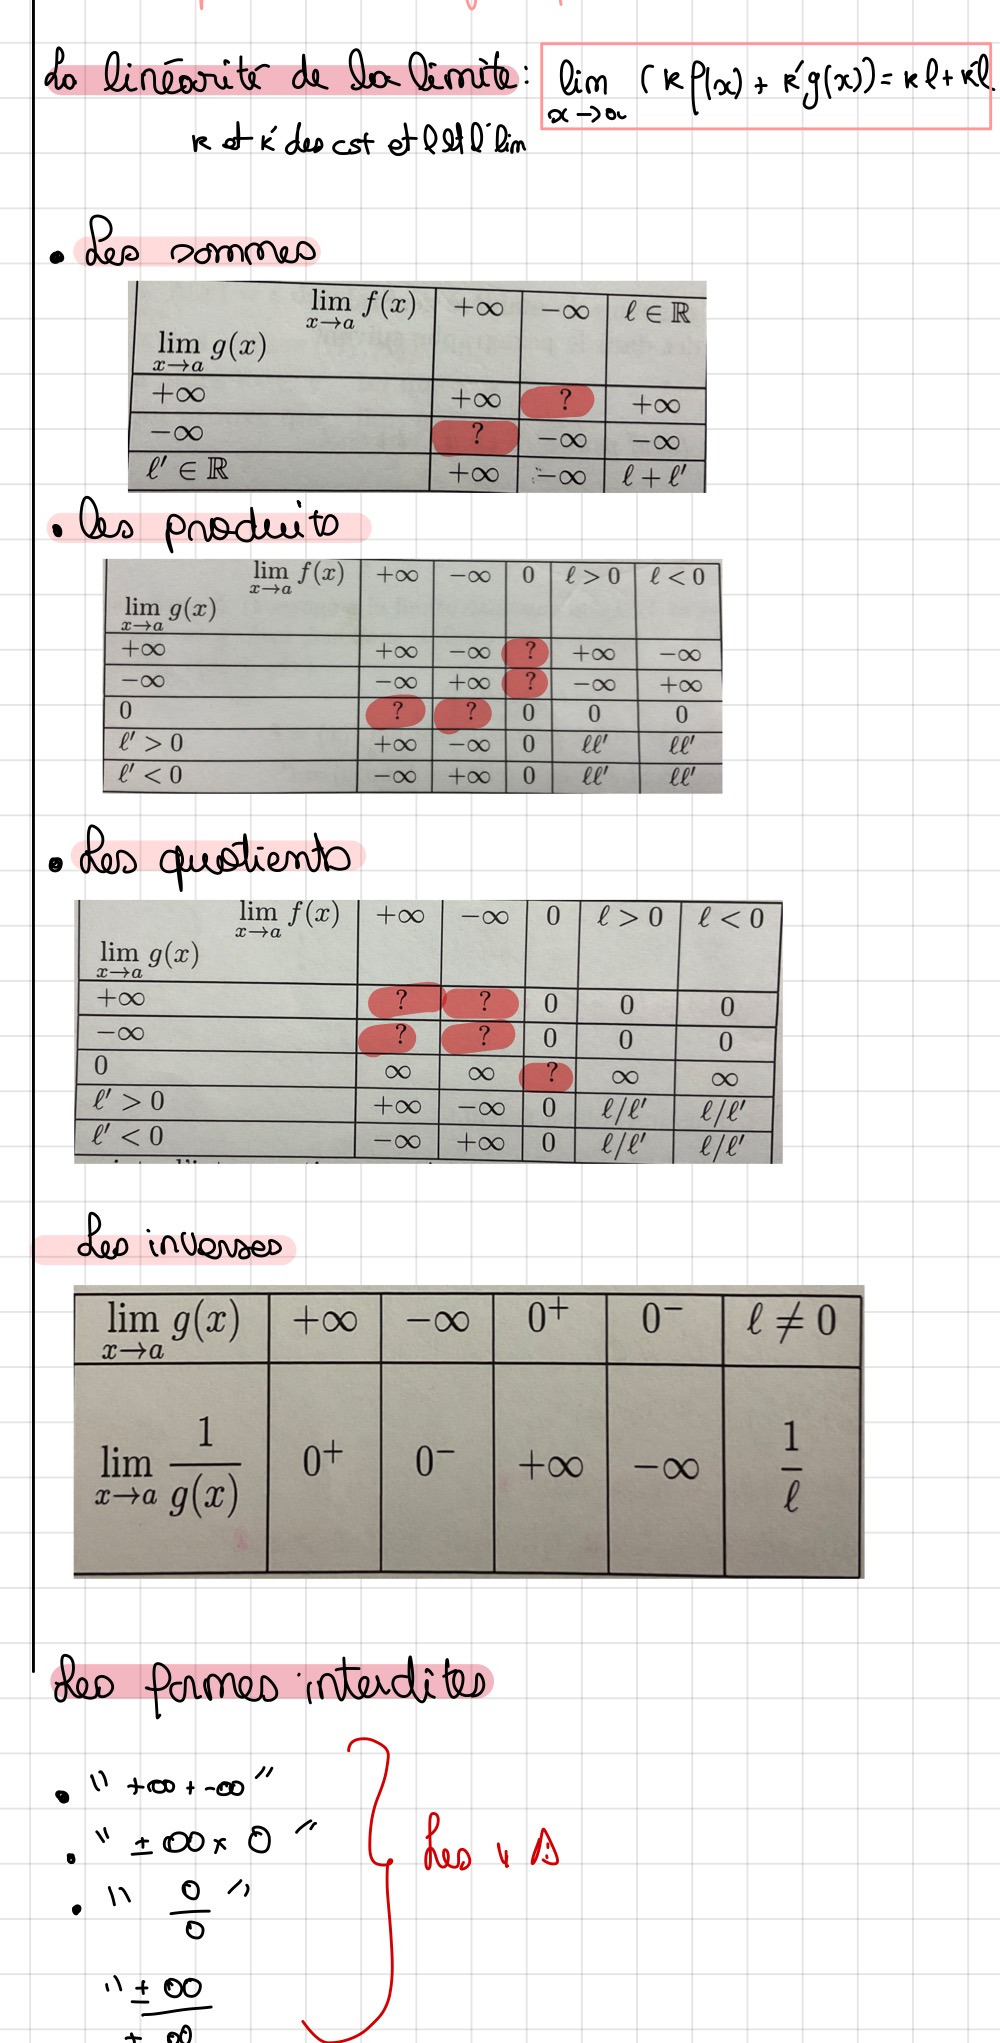 La linéarité de la limite : lim x→a (k f(x) + k'g(x)) = k l + k'l
k et k' des cst et l et l' lim
• Les sommes
lim x→a f(x) +∞ −∞ ℓ ∈ ℝ
lim x→a g(x)
+∞ +∞ ? +∞
−∞ ? −∞ −∞
ℓ′ ∈ ℝ +∞ −∞ ℓ + ℓ′
• les produits
lim x→a f(x) +∞ −∞ 0 ℓ > 0 ℓ < 0
lim x→a g(x)
+∞ +∞ −∞ ? +∞ −∞
−∞ −∞ +∞ ? −∞ +∞
0 ? ? 0 0 0
ℓ′ > 0 +∞ −∞ 0 ℓℓ′ ℓℓ′
ℓ′ < 0 −∞ +∞ 0 ℓℓ′ ℓℓ′
• Les quotients
lim x→a f(x) +∞ −∞ 0 ℓ > 0 ℓ < 0
lim x→a g(x)
+∞ ? ? 0 0 0
−∞ ? ? 0 0 0
0 ∞ ∞ ? ∞ ∞
ℓ′ > 0 +∞ −∞ 0 ℓ/ℓ′ ℓ/ℓ′
ℓ′ < 0 −∞ +∞ 0 ℓ/ℓ′ ℓ/ℓ′
Les inverses
lim x→a g(x) +∞ −∞ 0⁺ 0⁻ ℓ ≠ 0
lim x→a 1/g(x) 0⁺ 0⁻ +∞ −∞ 1/ℓ
Les formes interdites
• " +∞ + -∞ "
• " ± ∞ × 0 "
Les 4
• " 0/0 "
" ± ∞ / ± ∞